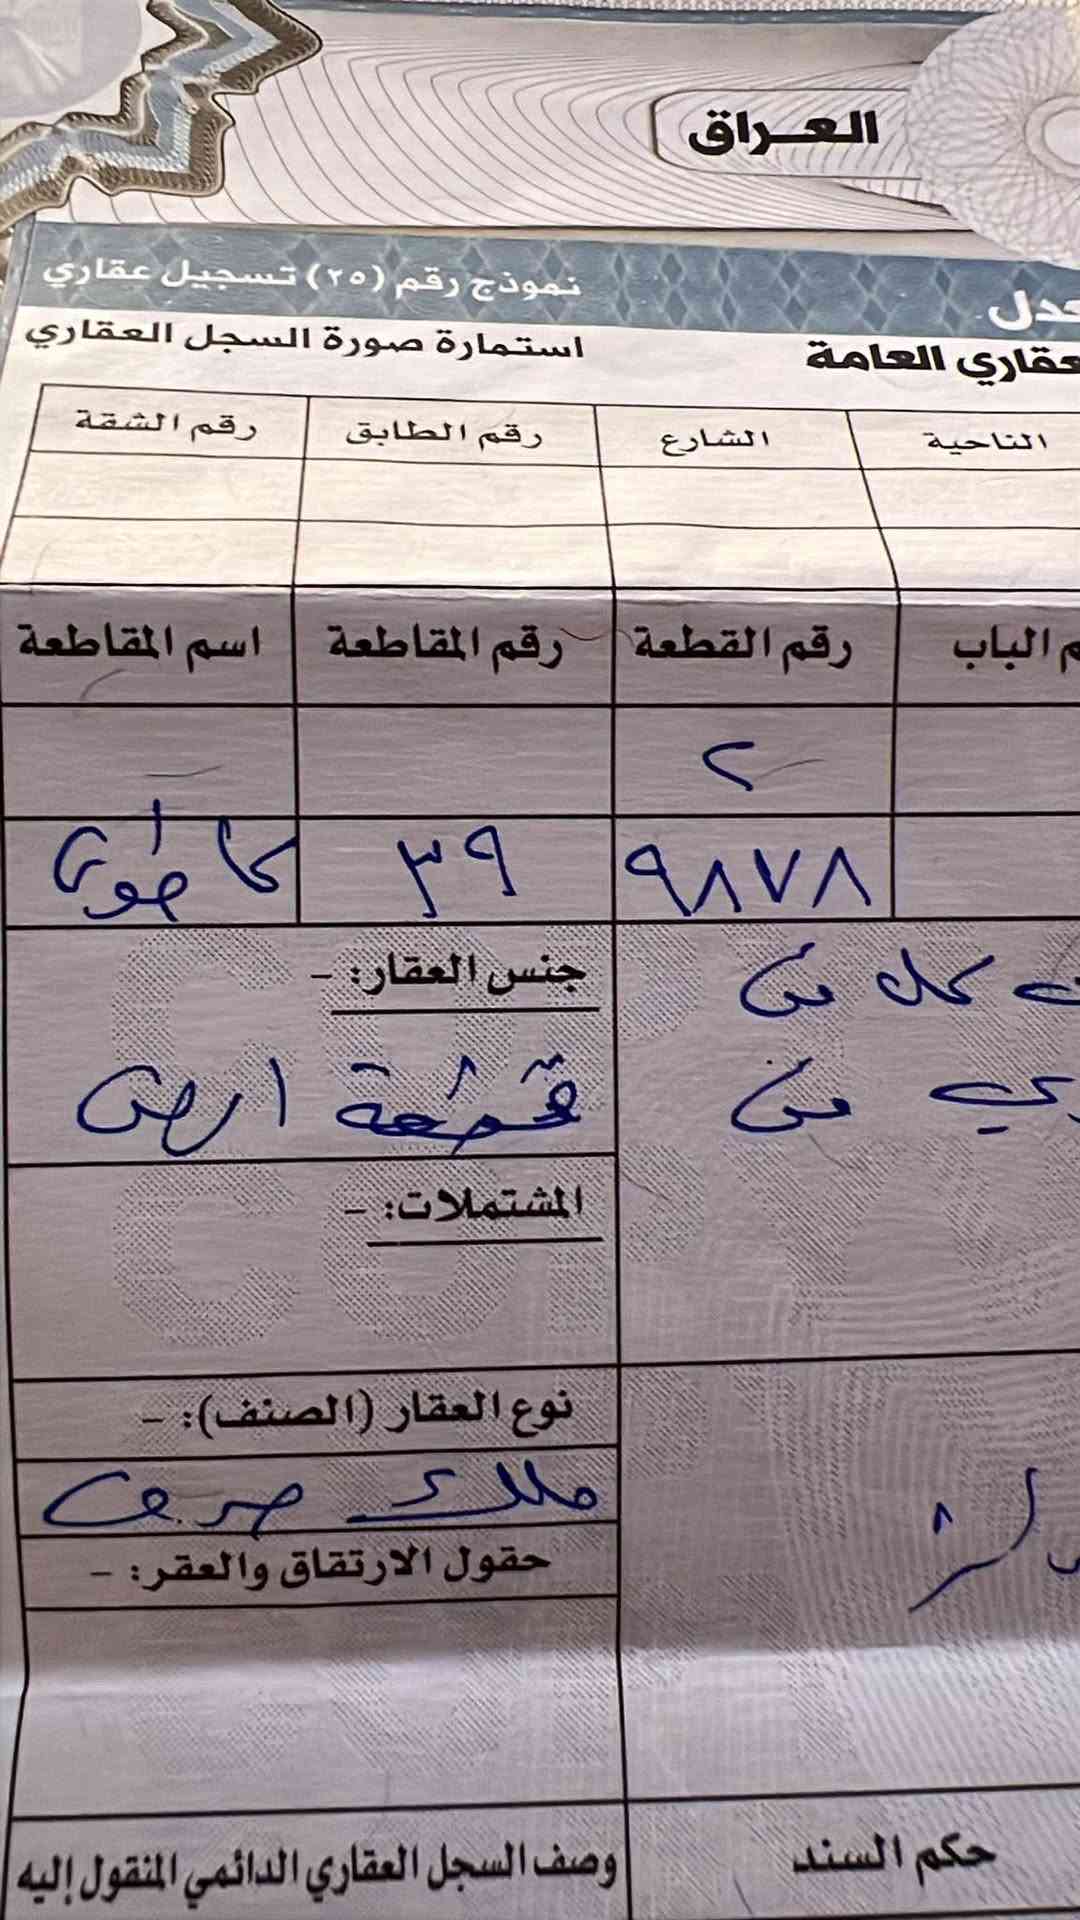 العراق
عدل
نموذج رقم (٢٥) تسجيل عقاري
عقاري العامة
استمارة صورة السجل العقاري
الناحية الشارع رقم الطابق رقم الشقة
م الباب رقم القطعة رقم المقاطعة اسم المقاطعة
٢
٩٨٧٨ ٣٩
كل من
جنس العقار: -
من
قطعة ارض
المشتملات: -
نوع العقار (الصنف): -
ملك صرف
حقول الارتقاق والعقر: -
حكم السند وصف السجل العقاري الدائمي المنقول إليه